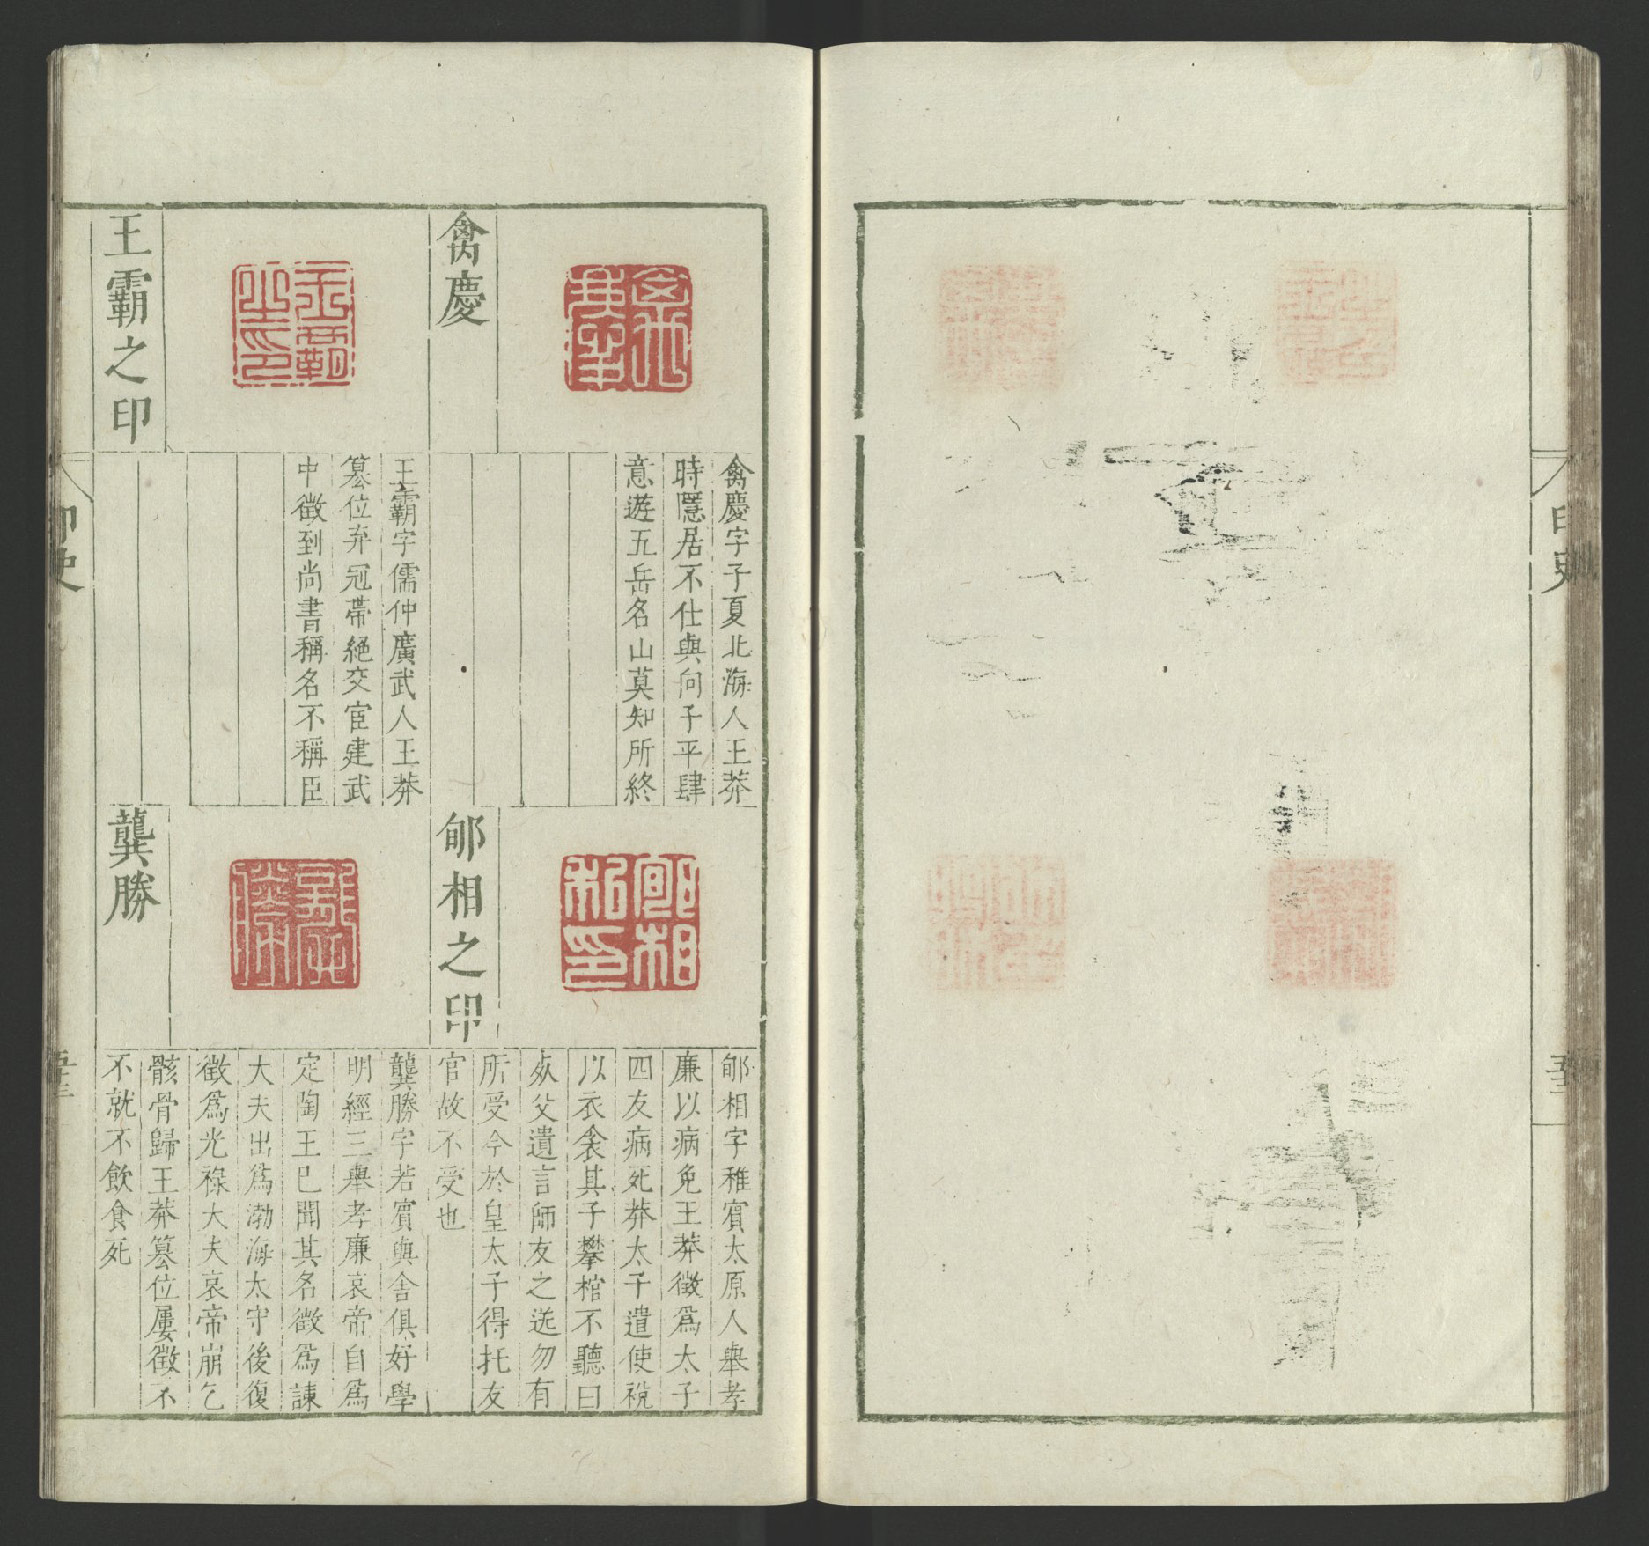 印史
五十三
禽慶
禽慶字子夏北海人王莽
時隱居不仕與向子平肆
意遊五岳名山莫知所終
王霸之印
王霸字儒仲廣武人王莽
篡位弃冠帶絕交宦建武
中徵到尚書稱名不稱臣
郇相之印
郇相字稚賓太原人舉孝
廉以病免王莽徵爲太子
四友病死莽太子遣使祱
以衣衾其子攀棺不聽曰
死父遺言師友之送勿有
所受今於皇太子得托友
官故不受也
龔勝
龔勝字若賓與舍俱好學
明經三舉孝廉哀帝自爲
定陶王已聞其名徵爲諫
大夫出爲渤海太守後復
徵爲光祿大夫哀帝崩乞
骸骨歸王莽篡位屢徵不
不就不飲食死
印史